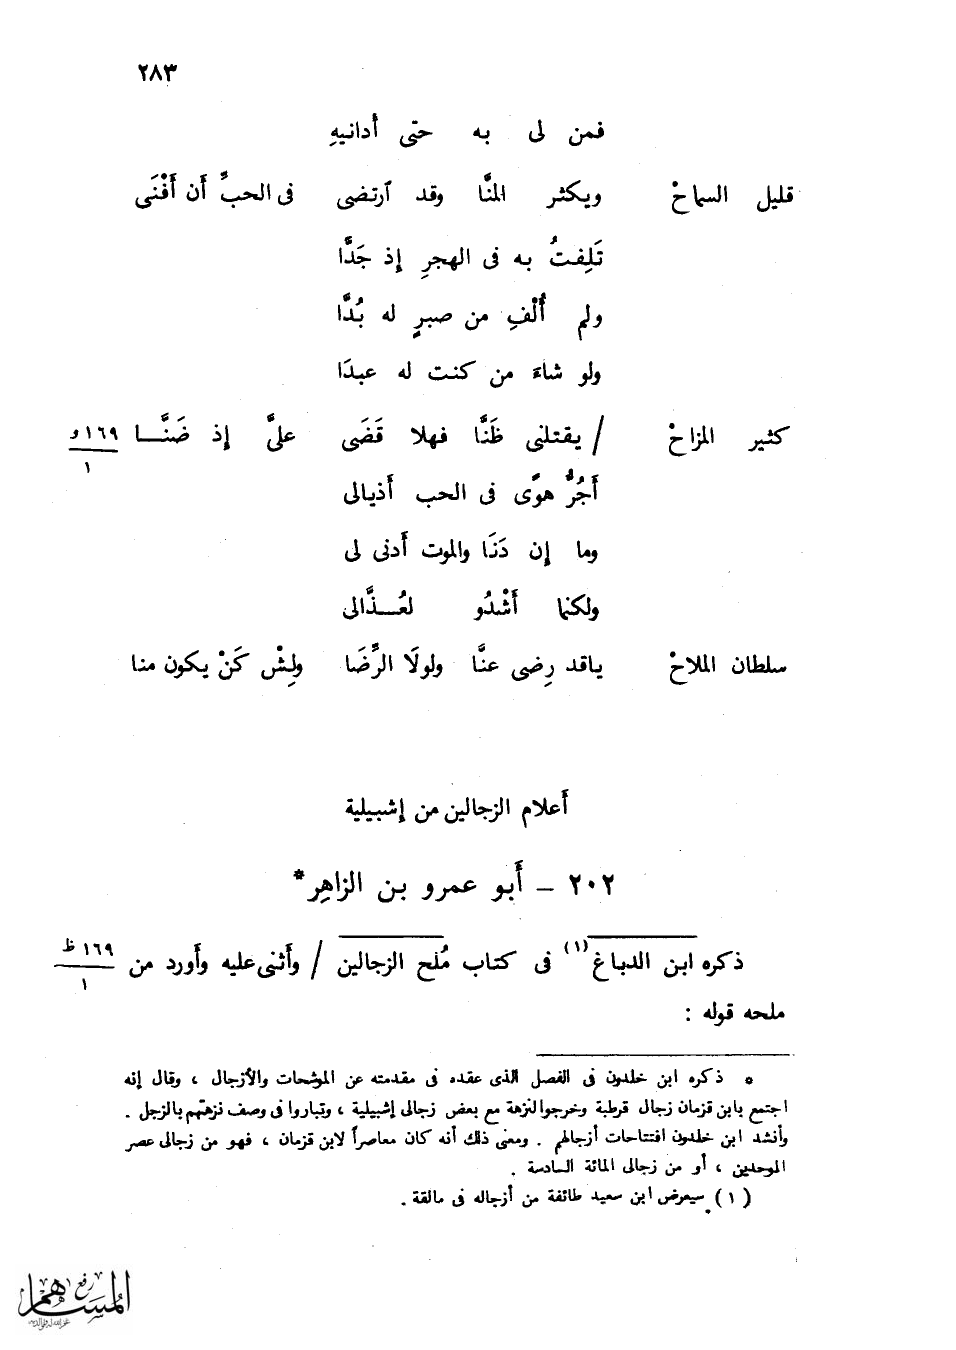 ٢٨٣
فمن لى به حتى أدانيهِ
قليل السماحْ ويكثر المنَّا وقد ارتضى فى الحبِّ أن أَفْنَى
تَلِفتُ به فى الهجرِ إذ جَدَّا
ولم أُلْفِ من صبرٍ له بُدَّا
ولو شاءَ من كنت له عبدَا
كثير المزاحْ / يقتلنى ظَنَّا فهلا قَضَى علىَّ إذ ضَنَّــا ١٦٩ و
١
أَجُرُّ هوًى فى الحب أَذيالى
وما إن دَنَا والموت أَدنى لى
ولكنما أَشْدُو لعُــذَّالى
سلطان الملاحْ ياقد رِضى عنَّا ولولَا الرِّضَا ولِشْ كَنْ يكون منا
أَعلام الزجالين من إشبيلية
٢٠٢ – أَبو عمرو بن الزاهِر*
ذكره ابن الدباغ(١) فى كتاب مُلَح الزجالين / وأَثنى عليه وأَورد من ١٦٩ ظ
١
ملحه قوله :
* ذكره ابن خلدون فى الفصل الذى عقده فى مقدمته عن الموشحات والأزجال ، وقال إنه
اجتمع بابن قزمان زجال قرطبة وخرجوا لنزهة مع بعض زجالى إشبيلية ، وتباروا فى وصف نزهتهم بالزجل .
وأنشد ابن خلدون افتتاحات أزجالهم . ومعنى ذلك أنه كان معاصراً لابن قزمان ، فهو من زجالى عصر
الموحدين ، أو من زجالى المائة السادسة .
(١) سيعرض ابن سعيد طائفة من أزجاله فى مالقة .
رفع
المساهم